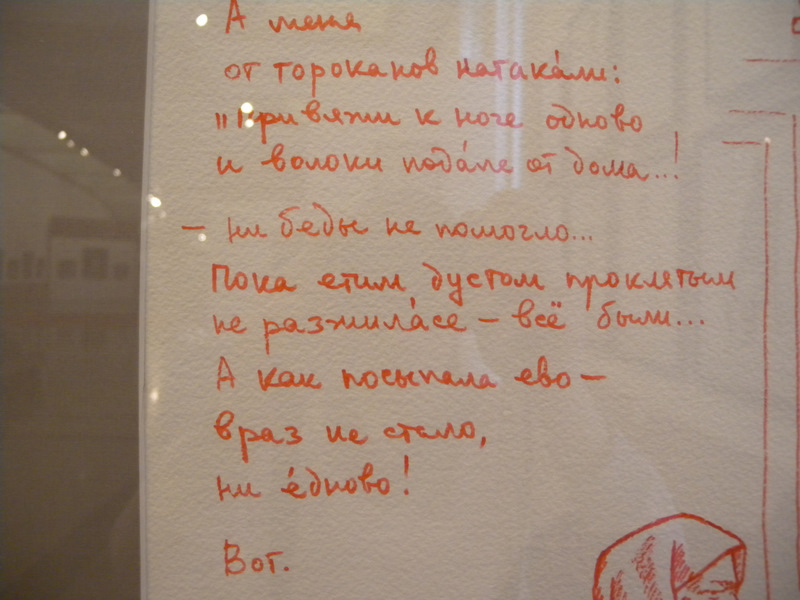 А меня
от тороканов натака́ли:
"Привяжи к ноге одново
и волоки пода́ле от дома...!
– ни беды не помогло...
Пока етим дустом проклятым
не разжила́се – всё были...
А как посыпала ево –
враз не стало,
ни е́дново!
Вот.